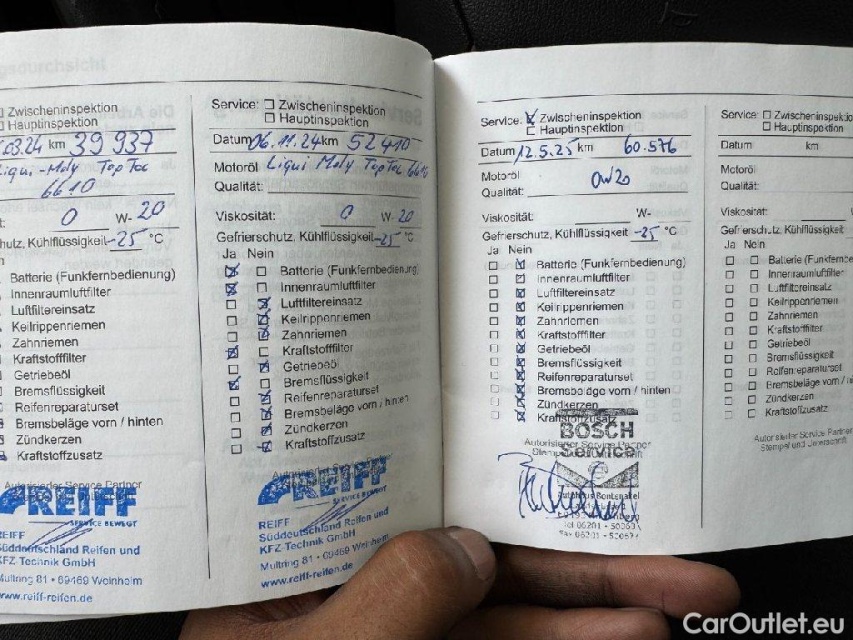 Zwischeninspektion
Hauptinspektion
.03.24 km 39 937
Liqui-Moly Top Tec
6610
0 W-20
Kühlflüssigkeit -25 °C
Batterie (Funkfernbedienung)
Innenraumluftfilter
Luftfiltereinsatz
Keilrippenriemen
Zahnriemen
Kraftstofffilter
Getriebeöl
Bremsflüssigkeit
Reifenreparaturset
Bremsbeläge vorn / hinten
Zündkerzen
Kraftstoffzusatz
Autorisierter Service Partner
REIFF
SERVICE BEWEGT
REIFF
Süddeutschland Reifen und
KFZ-Technik GmbH
Multring 81 • 69469 Weinheim
www.reiff-reifen.de
Service: Zwischeninspektion
Hauptinspektion
Datum 06.11.24 km 52410
Motoröl Liqui Moly Top Tec 6610
Qualität:
Viskosität: 0 W-20
Gefrierschutz, Kühlflüssigkeit -25 °C
Ja Nein
Batterie (Funkfernbedienung)
Innenraumluftfilter
Luftfiltereinsatz
Keilrippenriemen
Zahnriemen
Kraftstofffilter
Getriebeöl
Bremsflüssigkeit
Reifenreparaturset
Bremsbeläge vorn / hinten
Zündkerzen
Kraftstoffzusatz
Autorisierter Service Partner
REIFF
SERVICE BEWEGT
REIFF
Süddeutschland Reifen und
KFZ-Technik GmbH
Multring 81 • 69469 Weinheim
www.reiff-reifen.de
Service: Zwischeninspektion
Hauptinspektion
Datum 12.5.25 km 60.576
Motoröl 0W20
Qualität:
Viskosität: W-
Gefrierschutz, Kühlflüssigkeit -25 °C
Ja Nein
Batterie (Funkfernbedienung)
Innenraumluftfilter
Luftfiltereinsatz
Keilrippenriemen
Zahnriemen
Kraftstofffilter
Getriebeöl
Bremsflüssigkeit
Reifenreparaturset
Bremsbeläge vorn / hinten
Zündkerzen
Kraftstoffzusatz
Autorisierter Service Partner
BOSCH
Service
Tel 06201 -
Fax 06201 -
Service: Zwischeninspektio
Hauptinspektion
Datum km
Motoröl
Qualität:
Viskosität: W-
Gefrierschutz, Kühlflüssigkeit
Ja Nein
Batterie (Funkfernbe
Innenraumluftfilter
Luftfiltereinsatz
Keilrippenriemen
Zahnriemen
Kraftstofffilter
Getriebeöl
Bremsflüssigkeit
Reifenreparaturset
Bremsbeläge vorn / h
Zündkerzen
Kraftstoffzusatz
Autorisierter Service Partner
Stempel und Unterschrift
CarOutlet.eu